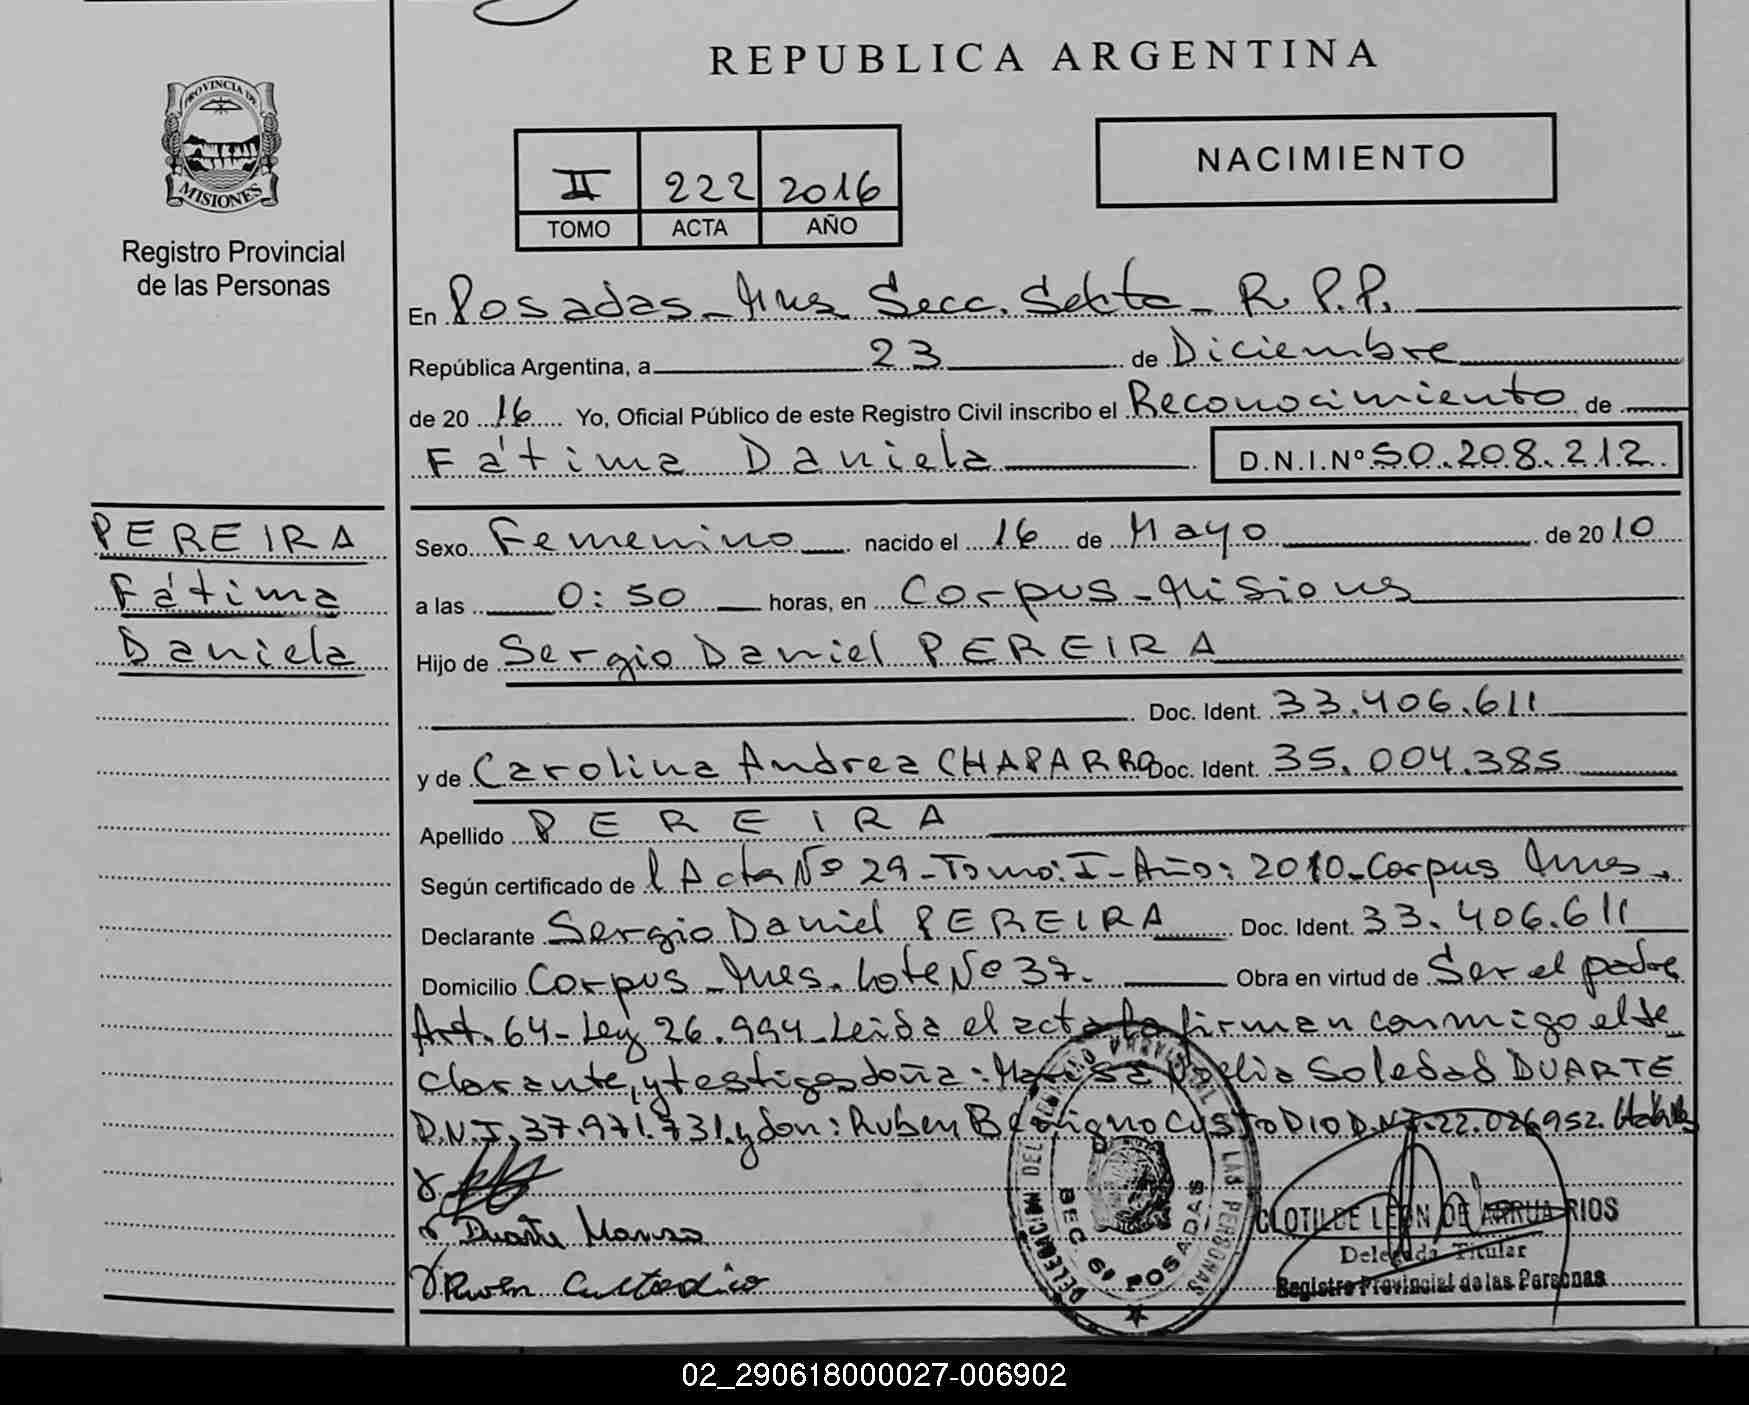 REPUBLICA ARGENTINA
PROVINCIA DE
MISIONES
Registro Provincial
de las Personas
II 222 2016
TOMO ACTA AÑO
NACIMIENTO
En Posadas - Mnes Secc. Sexta - R.P.P.
República Argentina, a 23 de Diciembre
de 20 16 Yo, Oficial Público de este Registro Civil inscribo el Reconocimiento de
Fátima Daniela D.N.I.Nº 50.208.212
PEREIRA
Fátima
Daniela
Sexo Femenino nacido el 16 de Mayo de 20 10
a las 0:50 horas, en Corpus - Misiones
Hijo de Sergio Daniel PEREIRA
Doc. Ident. 33.406.611
y de Carolina Andrea CHAPARRO Doc. Ident. 35.004.385
Apellido PEREIRA
Según certificado de l Acta Nº 29 - Tomo: I - Año: 2010 - Corpus Mnes.
Declarante Sergio Daniel PEREIRA Doc. Ident. 33.406.611
Domicilio Corpus - Mnes. Lote Nº 37. Obra en virtud de Ser el padre
Art. 64 - Ley 26.994 - Leida el acta la firman conmigo el de
clarante, y testigos doña: Soledad DUARTE
D.N.I. 37.971.731. y don: Ruben Benigno CUSTODIO D.N.I. 22.026.952.
Duarte
Ruben Custodio
DELEGACION DEL REGISTRO PROVINCIAL DE LAS PERSONAS
SEC 6ª POSADAS
CLOTILDE LEON DE ARRUA RIOS
Delegada Titular
Registro Provincial de las Personas
02_290618000027-006902